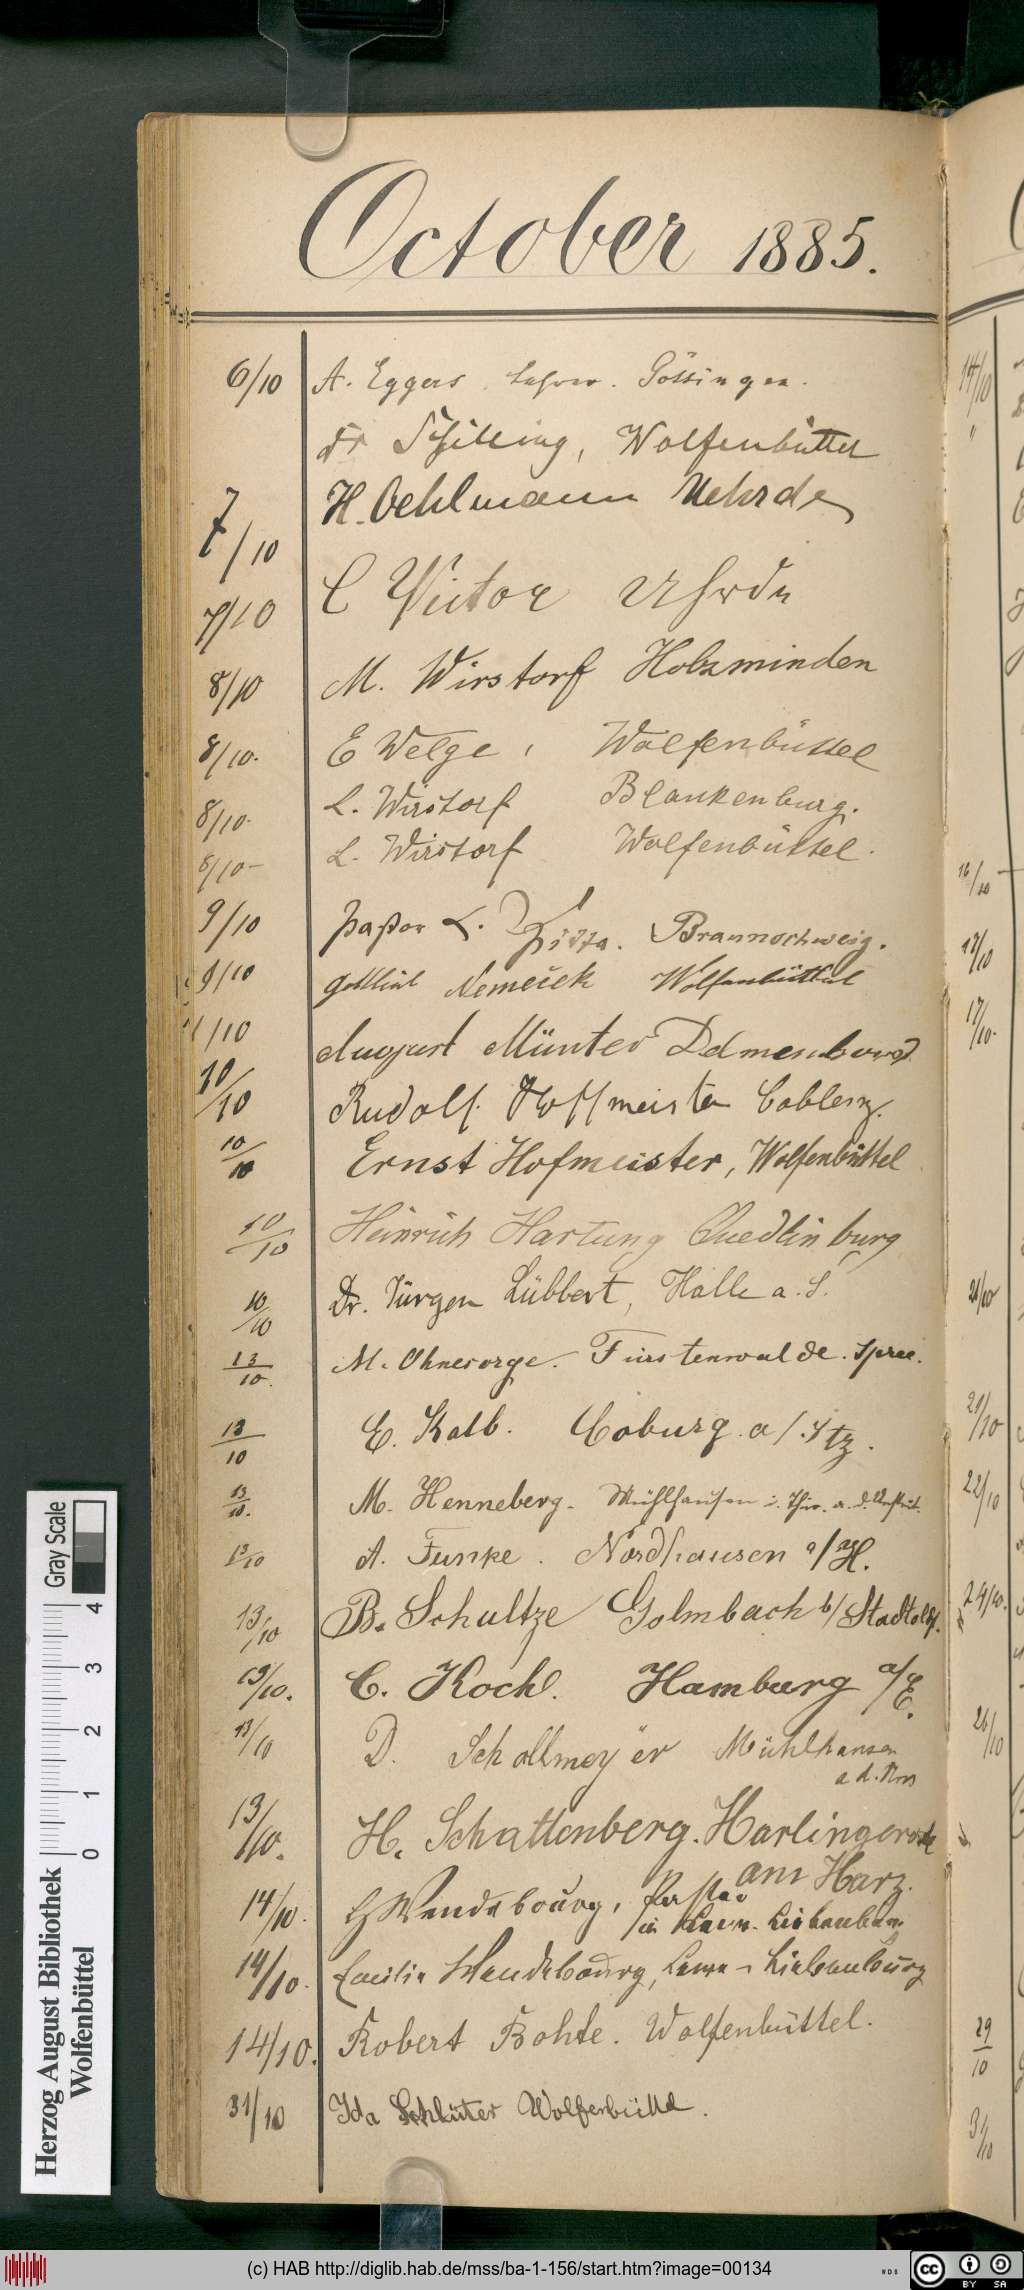 October 1885.
6/10 A. Eggers Lehrer. Göttingen.
Dr Schilling, Wolfenbüttel
7/10 H. Oehlmann Uehrde
7/10 C Victor Uhrde
8/10 M. Wirstorf Holzminden
8/10. E Welge, Wolfenbüttel
8/10. L. Wirstorf Blankenburg.
8/10- L. Wirstorf Wolfenbüttel.
9/10 Pastor L. Braunschweig.
9/10 Gottlieb Nemecek Wolfenbüttel
/10 August Münter
10/10 Rudolf Hoffmeister Coblenz.
10/10 Ernst Hofmeister, Wolfenbüttel
10/10 Heinrich Hartung Quedlinburg
10/10 Dr. Jürgen Lübbert, Halle a. S.
13/10. M. Ohnesorge. Fürstenwalde. Spree.
13/10 E. Kalb. Coburg a/Itz.
13/10. M. Henneberg. Mühlhausen i. Thür. a. d. Unstrut.
13/10 A. Funke. Nordhausen a/H.
13/10 B. Schultze Golmbach b/Stadtoldf.
13/10. C. Koch. Hamburg a/E.
13/10 D. Schollmeyer Mühlhausen
a d.
13/10. H. Schattenberg. Harlingerode
am Harz.
14/10. Wendebourg, Pastor
in Liebenburg
14/10. Caecilie Wendebourg, Liebenburg
14/10. Robert Bohte. Wolfenbüttel.
31/10 Ida Schlüter Wolfenbüttel.
14/10
"
16/10
17/10
17/10.
21/10
21/10
22/10
24/10.
26/10
29/10
31/10
Gray Scale
0 1 2 3 4
Herzog August Bibliothek
Wolfenbüttel
(c) HAB http://diglib.hab.de/mss/ba-1-156/start.htm?image=00134
WDB
cc BY SA